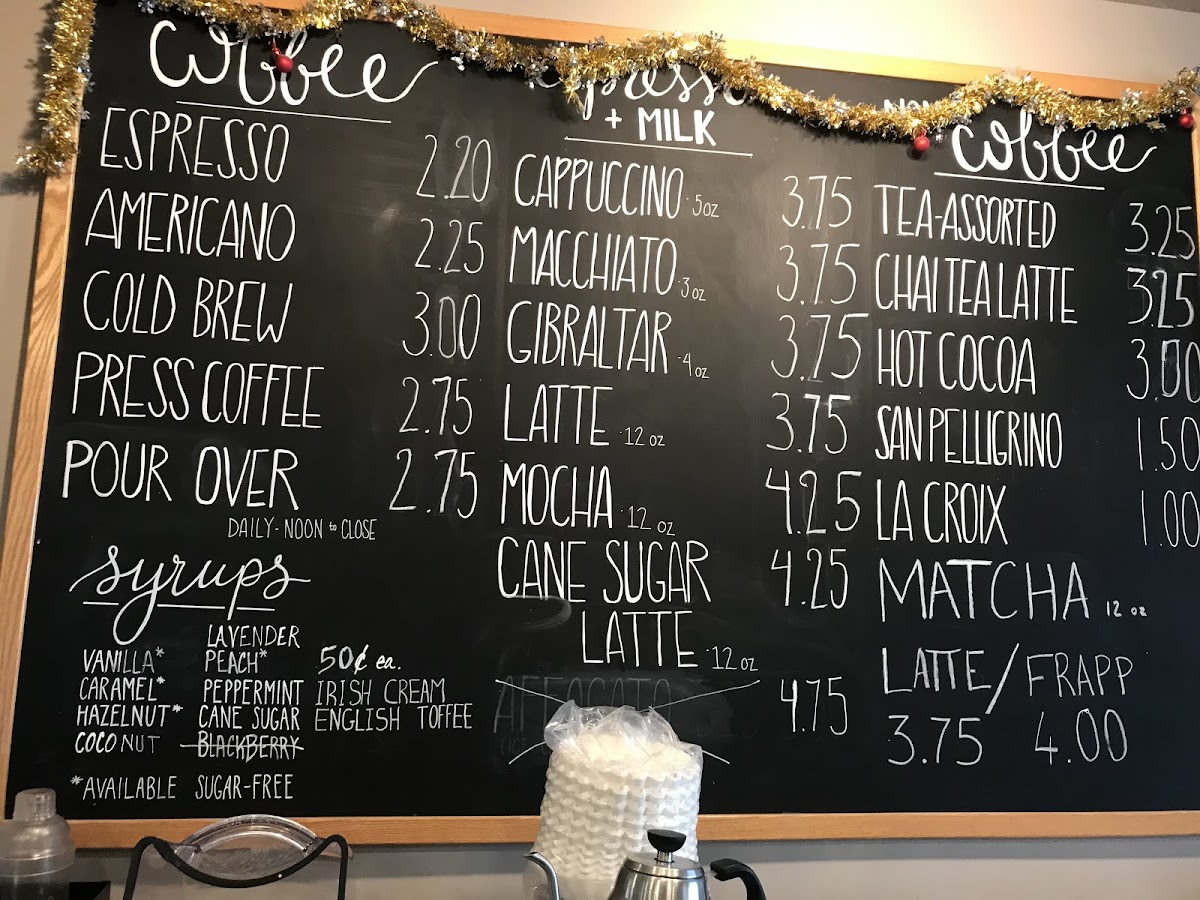 coffee
ESPRESSO 2.20
AMERICANO 2.25
COLD BREW 3.00
PRESS COFFEE 2.75
POUR OVER 2.75
DAILY - NOON to CLOSE
syrups
LAVENDER
VANILLA* PEACH* 50¢ ea.
CARAMEL* PEPPERMINT IRISH CREAM
HAZELNUT* CANE SUGAR ENGLISH TOFFEE
COCONUT BLACKBERRY
*AVAILABLE SUGAR-FREE
espresso
+ MILK
CAPPUCCINO · 5oz 3.75
MACCHIATO · 3oz 3.75
GIBRALTAR · 4oz 3.75
LATTE · 12 oz 3.75
MOCHA · 12 oz 4.25
CANE SUGAR 4.25
LATTE · 12oz
AFFOGATO 4.75
NON
coffee
TEA-ASSORTED 3.25
CHAI TEA LATTE 3.25
HOT COCOA 3.00
SAN PELLIGRINO 1.50
LA CROIX 1.00
MATCHA 12 oz
LATTE/FRAPP
3.75 4.00